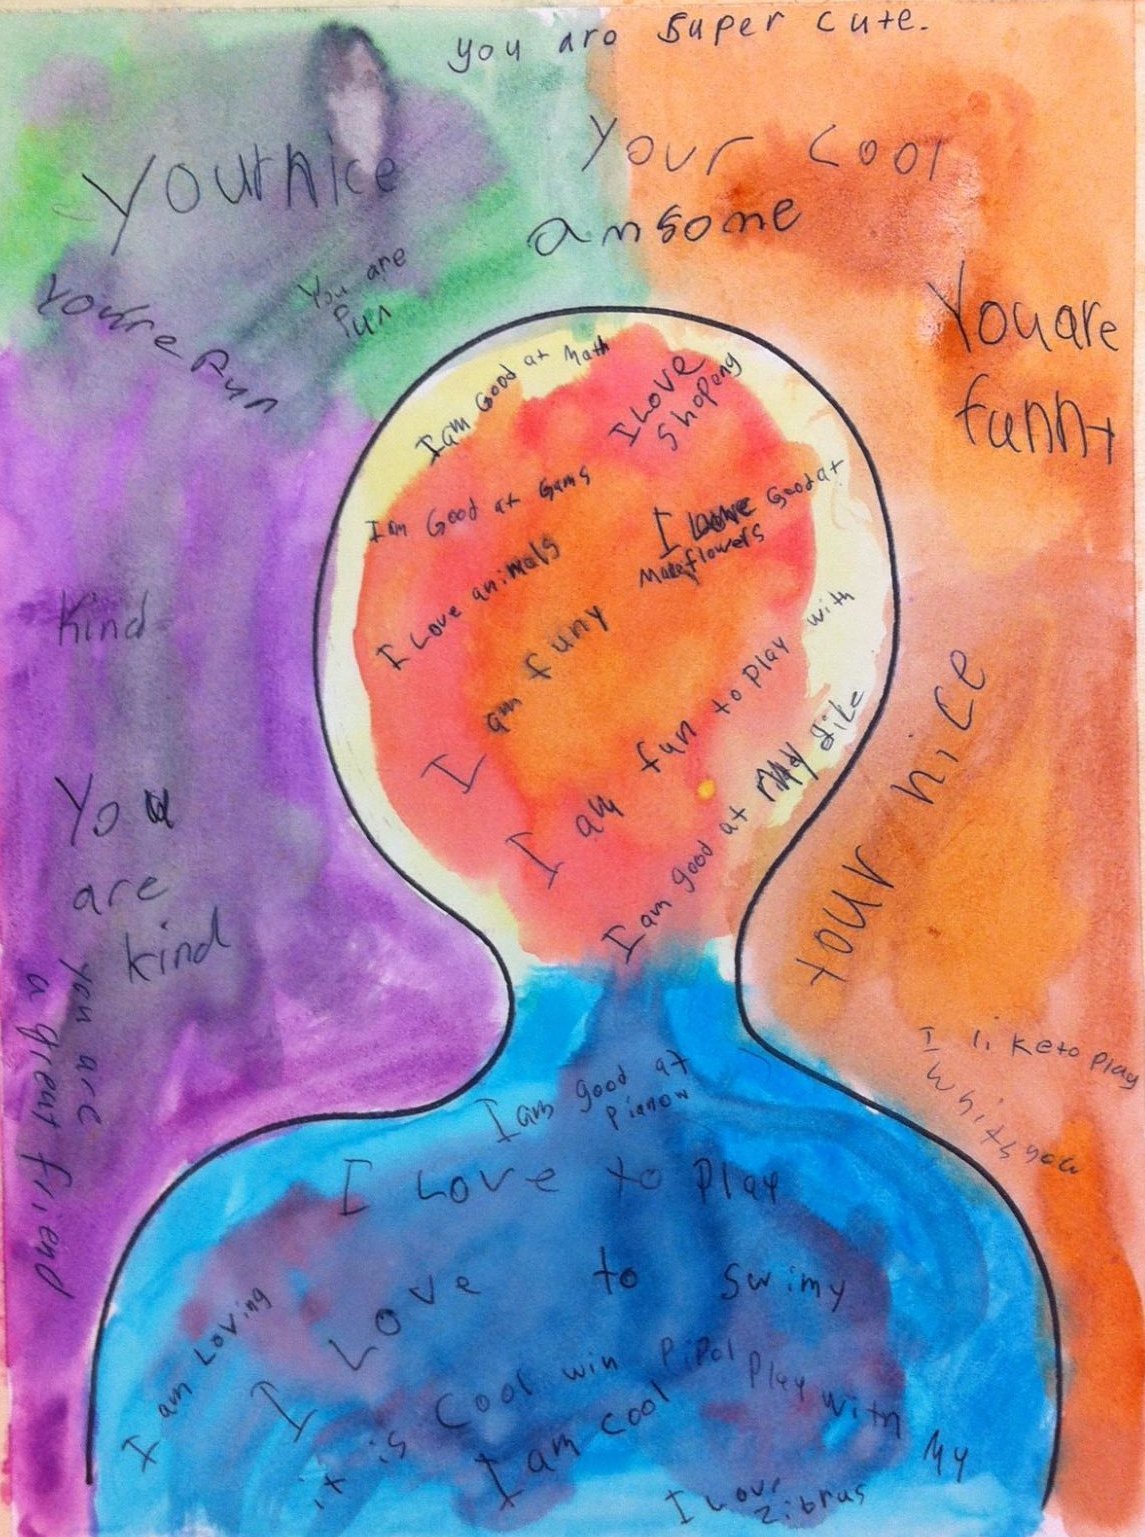 you are super cute.
Your cool
Your nice
awsome
You are
fun
You're fun
You are
funny
I am Good at Math
I Love
Shopeng
I am Good at Gams
I Good at
Make flowers
I Love animals
I am funy
Kind
I am fun to play with
I am good at My
You
are
kind
your nice
you are
a great friend
I like to play
whits you
I am good at
pianow
I Love to play
I Love to swimy
I am Loving
it is Cool win pipol play with My
I am cool
I Love
zibras